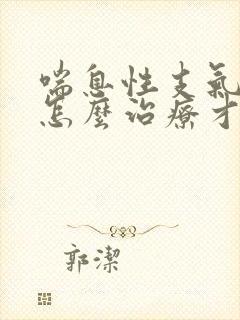 喘息性支氣
怎麼治療才
郭潔